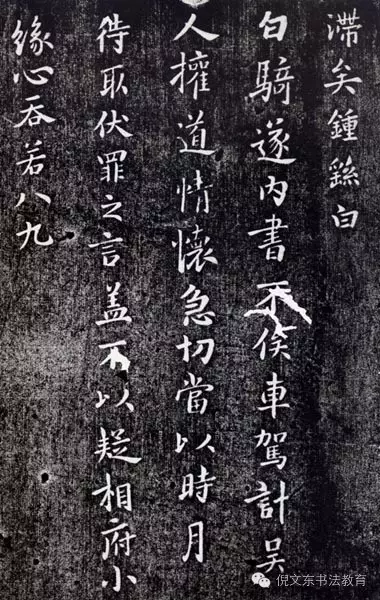 滯矣鍾繇白
白騎遂內書不俟車駕計吳
人權道情懷急切當以時月
待取伏罪之言蓋不以疑相府小
緣心吞若八九
倪文东书法教育